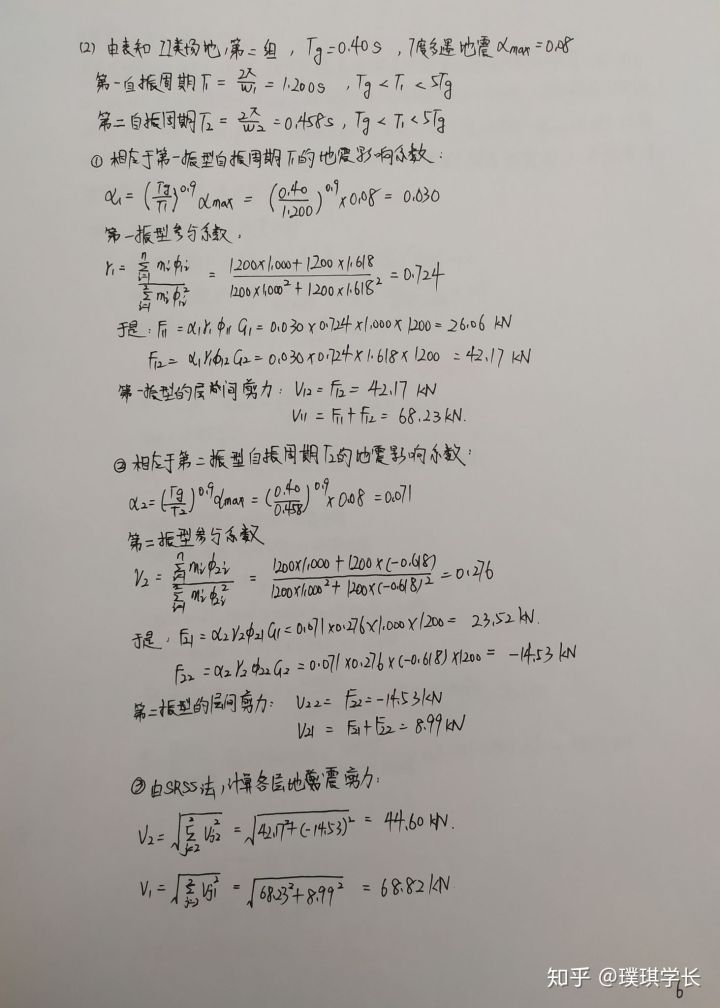 (2) 由表知 II类场地，第二组，Tg=0.40s，7度多遇地震αmax=0.08
第一自振周期T₁ = 2π/w₁ = 1.200s，Tg < T₁ < 5Tg
第二自振周期T₂ = 2π/w₂ = 0.458s，Tg < T₁ < 5Tg
① 相应于第一振型自振周期T₁的地震影响系数：
α₁ = (Tg/T₁)^0.9 αmax = (0.40/1.200)^0.9 ×0.08 = 0.030
第一振型参与系数：
γ₁ = Σ(i=1→n) miφ₁i / Σ(i=1→2) miφ₁i² = (1200×1.000+1200×1.618)/(1200×1.000²+1200×1.618²) = 0.724
于是：F₁₁ = α₁γ₁φ₁₁G₁ = 0.030×0.724×1.000×1200 = 26.06 kN
F₁₂ = α₁γ₁φ₁₂G₂ = 0.030×0.724×1.618×1200 = 42.17 kN
第一振型的层间剪力：V₁₂ = F₁₂ = 42.17 kN
V₁₁ = F₁₁+F₁₂ = 68.23kN.
② 相应于第二振型自振周期T₂的地震影响系数：
α₂ = (Tg/T₂)^0.9 αmax = (0.40/0.458)^0.9 ×0.08 = 0.071
第二振型参与系数
γ₂ = Σ(i=1→n) miφ₂i / Σ(i=1→2) miφ₂i² = (1200×1.000+1200×(-0.618))/(1200×1.000²+1200×(-0.618)²) = 0.276
于是，F₂₁ = α₂γ₂φ₂₁G₁ = 0.071×0.276×1.000×1200 = 23.52 kN.
F₂₂ = α₂γ₂φ₂₂G₂ = 0.071×0.276×(-0.618)×1200 = -14.53 kN
第二振型的层间剪力：V₂₂ = F₂₂ = -14.53kN
V₂₁ = F₂₁+F₂₂ = 8.99kN
③ 由SRSS法，计算各层地震剪力：
V₂ = √(Σ(j=2→2) Vj₂²) = √(42.17²+(-14.53)²) = 44.60 kN.
V₁ = √(Σ(j=2→2) Vj₁²) = √(68.23²+8.99²) = 68.82kN
知乎 @璞琪学长
6